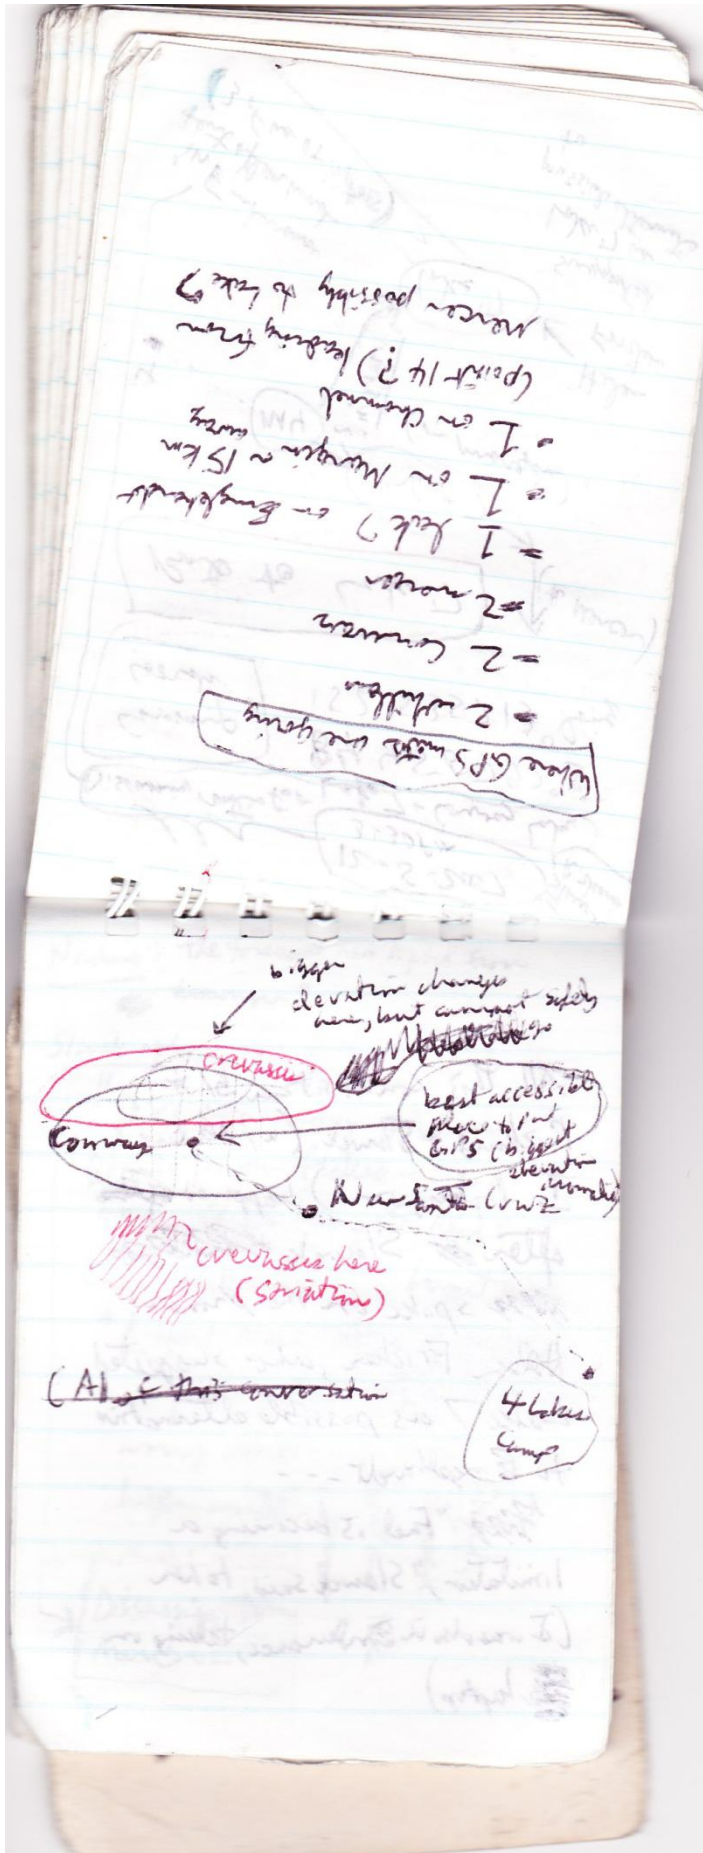 Where GPS units are going
= 2 Whillans
= 2 Conway
= 2 mercer
= 1 lake 7 or Englehardt
= 1 on Margin ~ 15 km
away
• 1 on Channel
(point 14?) leading from
Mercer possibly to Lake 7
bigger
elevation changes
here, but cannot safely
go
crevasses
best accessible
place to put
GPS (biggest
elevation
anomaly)
Conway
crevasses here
(striations)
(All of this conversation
4 Lakes
Camp